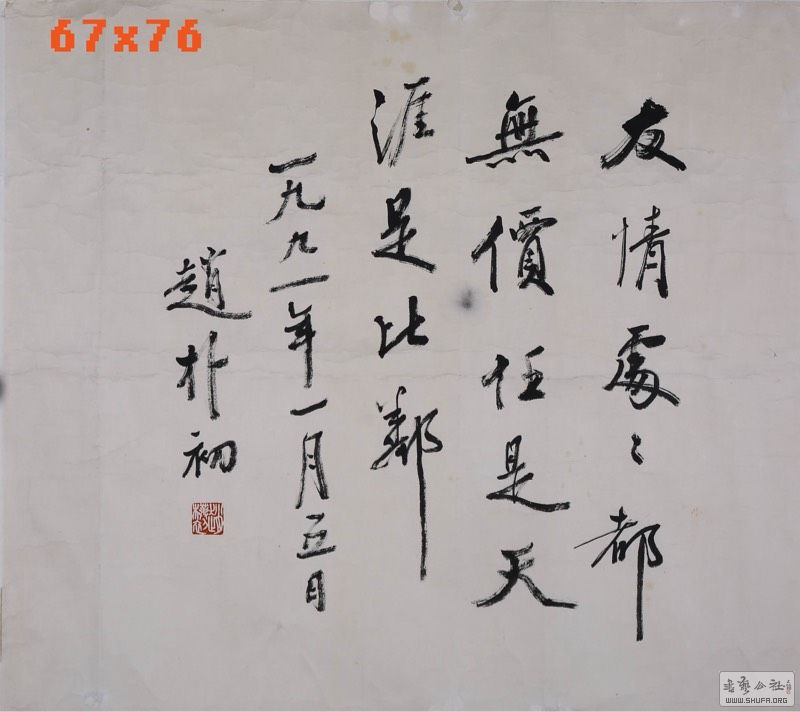 67x76
友情處〻都
無價任是天
涯是比鄰
一九九一年一月五日
趙朴初
書藝公社
WWW.SHUFA.ORG